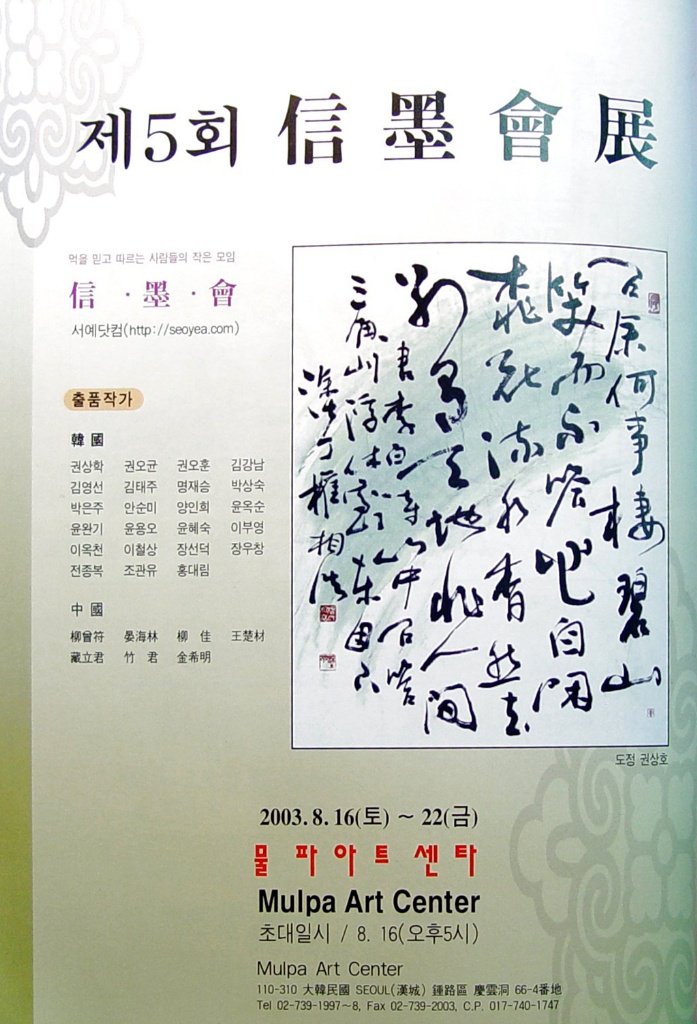 제5회 信墨會展
먹을 믿고 따르는 사람들의 작은 모임
信·墨·會
서예닷컴(http://seoyea.com)
출품작가
韓國
권상학 권오균 권오훈 김강남
김영선 김태주 명재승 박상숙
박은주 안순미 양인희 윤옥순
윤완기 윤용오 윤혜숙 이부영
이옥천 이철상 장선덕 장우창
전종복 조관유 홍대림
中國
柳曾符 晏海林 柳佳 王楚材
藏立君 竹君 金希明
問余何事棲碧山
笑而不答心自閑
桃花流水杳然去
別有天地非人間
書李白詩山中問答
三角山浮休
權相浩
도정 권상호
2003. 8. 16(토) ~ 22(금)
물파아트센타
Mulpa Art Center
초대일시 / 8. 16(오후5시)
Mulpa Art Center
110-310 大韓民國 SEOUL(漢城) 鍾路區 慶雲洞 66-4番地
Tel 02-739-1997~8, Fax 02-739-2003, C.P. 017-740-1747